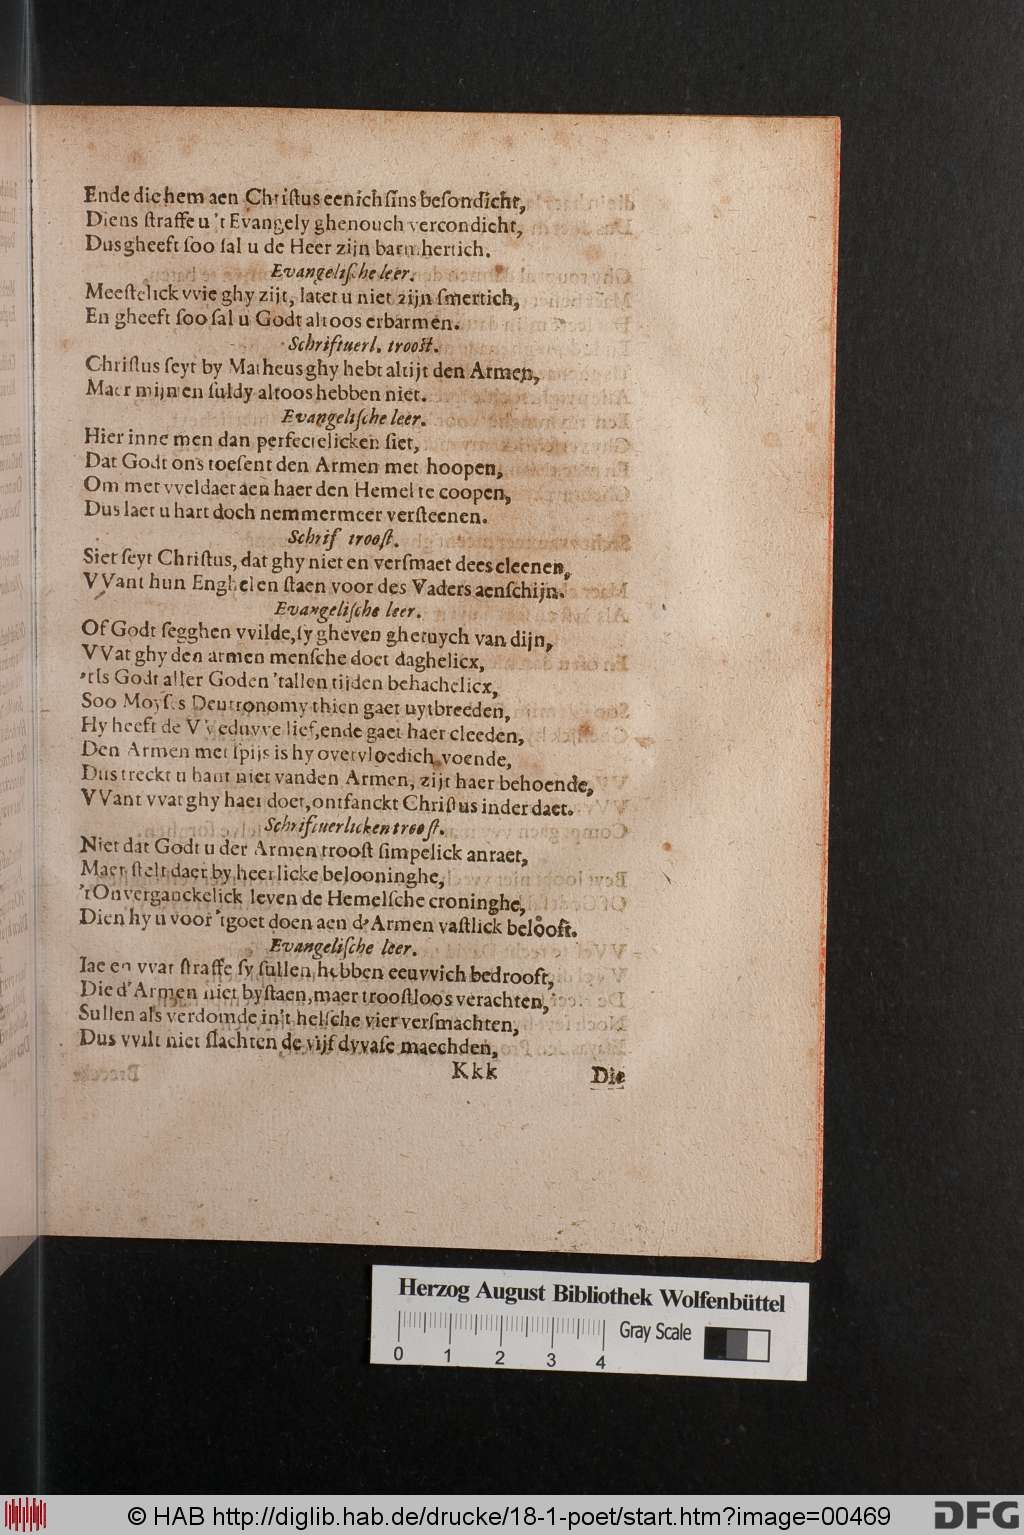 Ende die hem aen Chriſtus eenich ſins beſondicht,
Diens ſtraffe u 't Evangely ghenouch vercondicht,
Dus gheeft ſoo ſal u de Heer zijn barmhertich.
Evangeliſche leer.
Meeſtelick vvie ghy zijt, latet u niet zijn ſmertich,
En gheeft ſoo ſal u Godt altoos erbarmen.
Schriftuerl. trooſt.
Chriſtus ſeyt by Matheus ghy hebt altijt den Armen,
Maer mijn en ſuldy altoos hebben niet.
Evangeliſche leer.
Hier inne men dan perfectelicken ſiet,
Dat Godt ons toeſent den Armen met hoopen,
Om met vveldaet aen haer den Hemel te coopen,
Dus laet u hart doch nemmermeer verſteenen.
Schrif trooſt.
Siet ſeyt Chriſtus, dat ghy niet en verſmaet dees cleenen,
VVant hun Enghelen ſtaen voor des Vaders aenſchijn.
Evangeliſche leer.
Of Godt ſegghen vvilde, ſy gheven ghetuych van dijn,
VVat ghy den armen menſche doet daghelicx,
'tIs Godt aller Goden 'tallen tijden behachelicx,
Soo Moyſes Deutronomy thien gaet uytbreeden,
Hy heeft de VVeduvve lief, ende gaet haer cleeden,
Den Armen met ſpijs is hy overvloedich voende,
Dus treckt u hant niet vanden Armen, zijt haer behoende,
VVant vvat ghy haer doet, ontfanckt Chriſtus inder daet.
Schriftuerlicken trooſt.
Niet dat Godt u der Armen trooſt ſimpelick anraet,
Maer ſtelt daer by heerlicke belooninghe,
'tOnverganckelick leven de Hemelſche croninghe,
Dien hy u voor 'tgoet doen aen d'Armen vaſtlick belooſt.
Evangeliſche leer.
Iae en vvat ſtraffe ſy ſullen hebben eeuvvich bedrooft,
Die d'Armen niet byſtaen, maer trooſtloos verachten,
Sullen als verdomde in't helſche vier verſmachten,
Dus vvilt niet ſlachten de vijf dvvaſe maechden,
Kkk Die
Herzog August Bibliothek Wolfenbüttel
0 1 2 3 4 Gray Scale
© HAB http://diglib.hab.de/drucke/18-1-poet/start.htm?image=00469 DFG